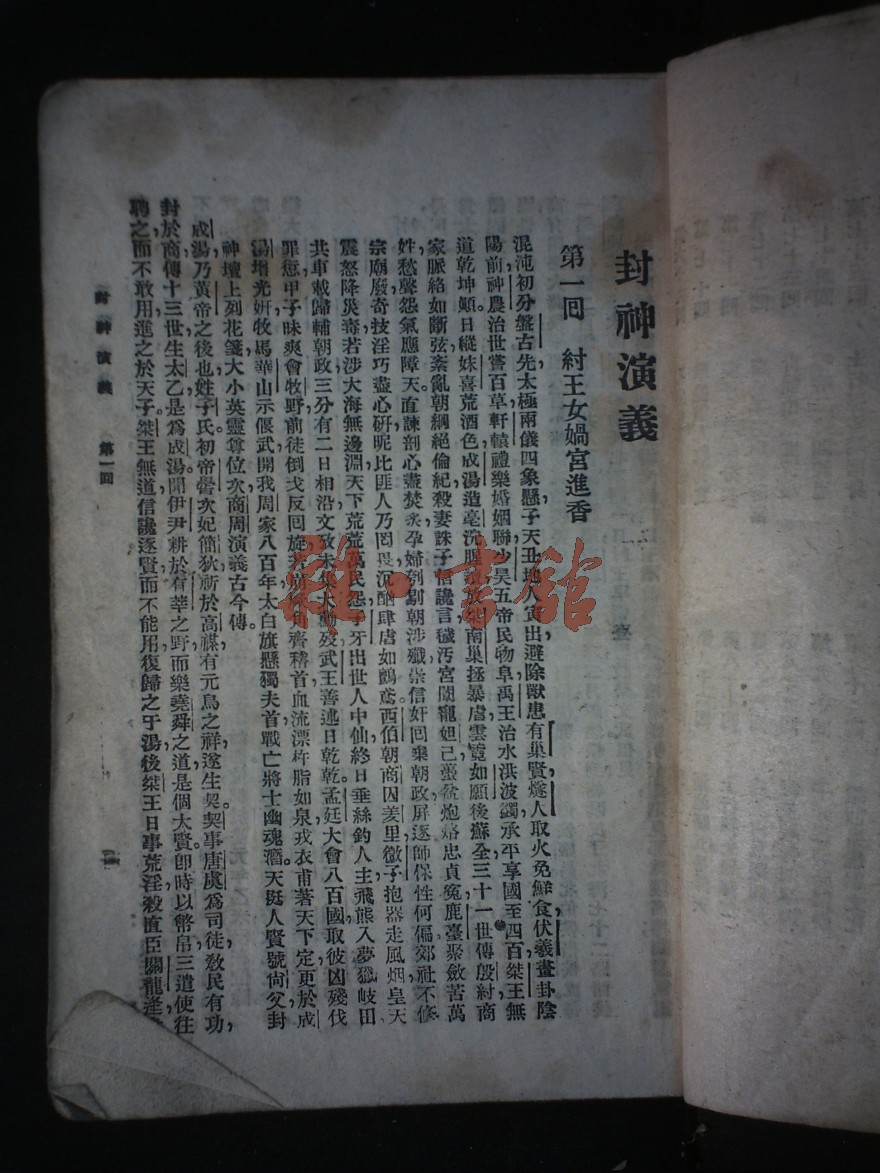 封神演義
第一回　紂王女媧宮進香
混沌初分盤古先，太極兩儀四象懸，子天丑地人寅出，避除獸患有巢賢，燧人取火免鮮食，伏羲畫卦陰
陽前，神農治世嘗百草，軒轅禮樂婚姻聯，少昊五帝民物阜，禹王治水洪波蠲，承平享國至四百，桀王無
道乾坤顛。日縱妹喜荒酒色，成湯造亳洗腥羶，放桀南巢拯暴虐，雲霓如願後蘇全，三十一世傳殷紂，商
家脈絡如斷弦，紊亂朝綱絕倫紀，殺妻誅子信讒言，穢汚宮闈寵妲己，蠆盆炮烙忠貞冤，鹿臺聚斂苦萬
姓，愁聲怨氣應障天。直諫剖心盡焚炙，孕婦刳剔朝涉殲，崇信奸回棄朝政，屏逐師保性何偏，郊社不修
宗廟廢，奇技淫巧盡心硏，昵比匪人乃罔畏，沉酗肆虐如鸇鳶。西伯朝商囚羑里，微子抱器走風烟，皇天
震怒降災毒，若涉大海無邊淵，天下荒荒萬民怨，子牙出世人中仙，終日垂絲釣人主，飛熊入夢獵岐田，
共車載歸輔朝政，三分有二日相沿，文攷未集大勳歿，武王善述日乾乾。孟廷大會八百國，取彼凶殘伐
罪愆，甲子昧爽會牧野，前徒倒戈反回旋，若崩厥角齊稽首，血流漂杵脂如泉，戎衣甫著天下定，更於成
湯增光姸，牧馬華山示偃武，開我周家八百年，太白旗懸獨夫首，戰亡將士幽魂潛。天挺人賢號尙父，封
神壇上列花箋，大小英靈尊位次，商周演義古今傳。
成湯，乃黃帝之後也，姓子氏，初帝嚳次妃簡狄，祈於高禖，有元鳥之祥，遂生契。契事唐虞爲司徒，敎民有功，
封於商，傳十三世，生太乙，是爲成湯，聞伊尹耕於有莘之野，而樂堯舜之道，是個大賢，卽時以幣帛，三遣使往
聘之，而不敢用，進之於天子。桀王無道，信讒逐賢，而不能用，復歸之于湯，後桀王日事荒淫，殺直臣關龍逄
封神演義　第一回　一
雜·書館